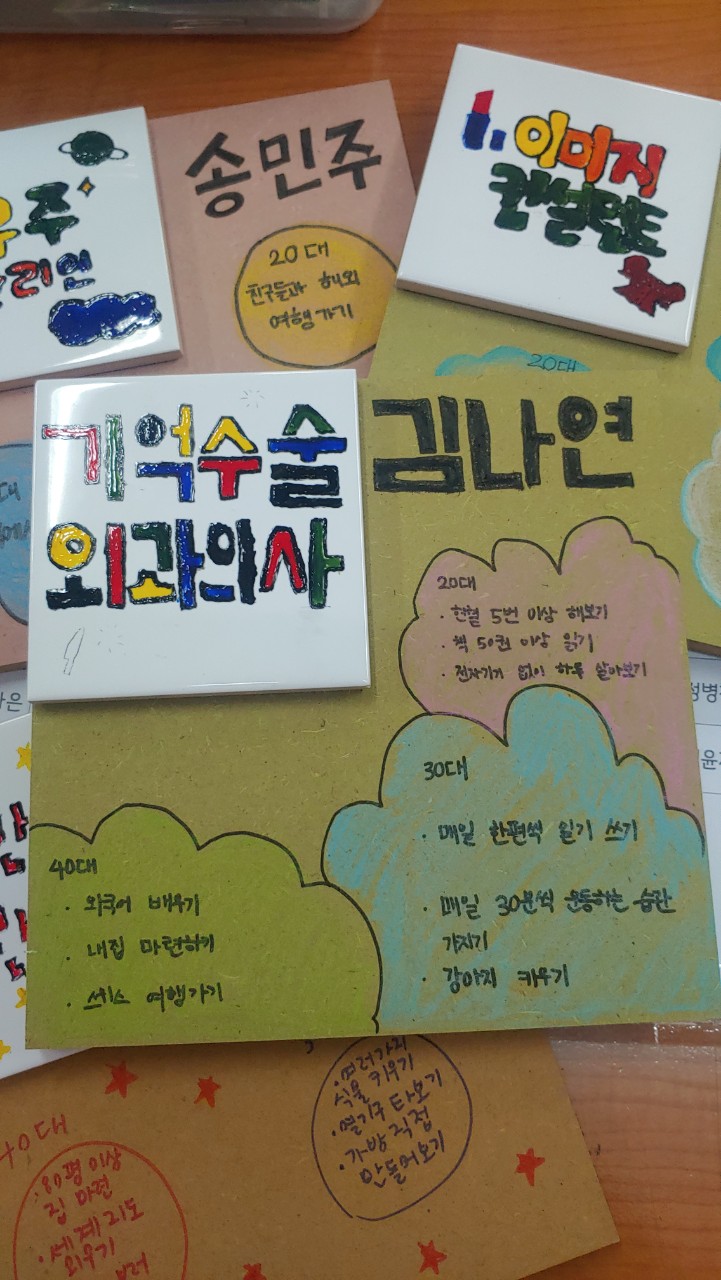 송민주
20대
친구들과 해외
여행가기
이미지
컨설턴트
우주
20대
기억수술
외과의사
김나연
20대
· 헌혈 5번 이상 해보기
· 책 50권 이상 읽기
· 전자기기 없이 하루 살아보기
30대
· 매일 한편씩 일기 쓰기
· 매일 30분씩 운동하는 습관
가지기
· 강아지 키우기
40대
· 외국어 배우기
· 내집 마련하기
· 스위스 여행가기
· 여러가지
식물 키우기
· 열기구 타보기
· 가방 직접
만들어보기
40대
· 80평 이상
집 마련
· 세계지도
외우기